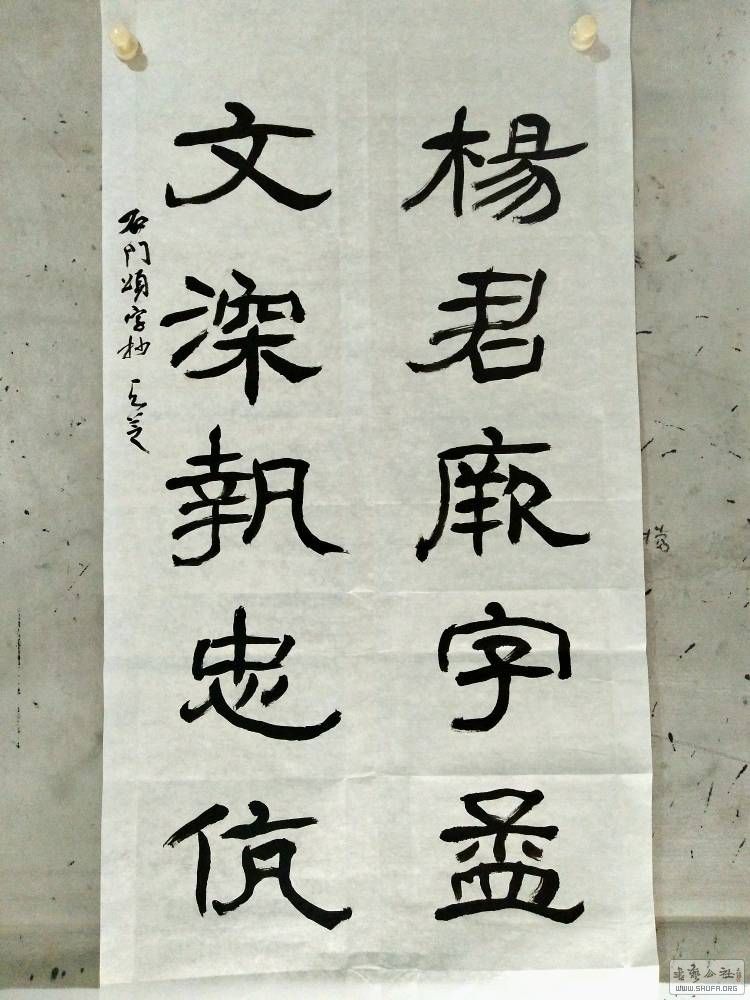 楊君厥字孟
文深執忠伉
石門頌字抄
書藝公社
WWW.SHUFA.ORG